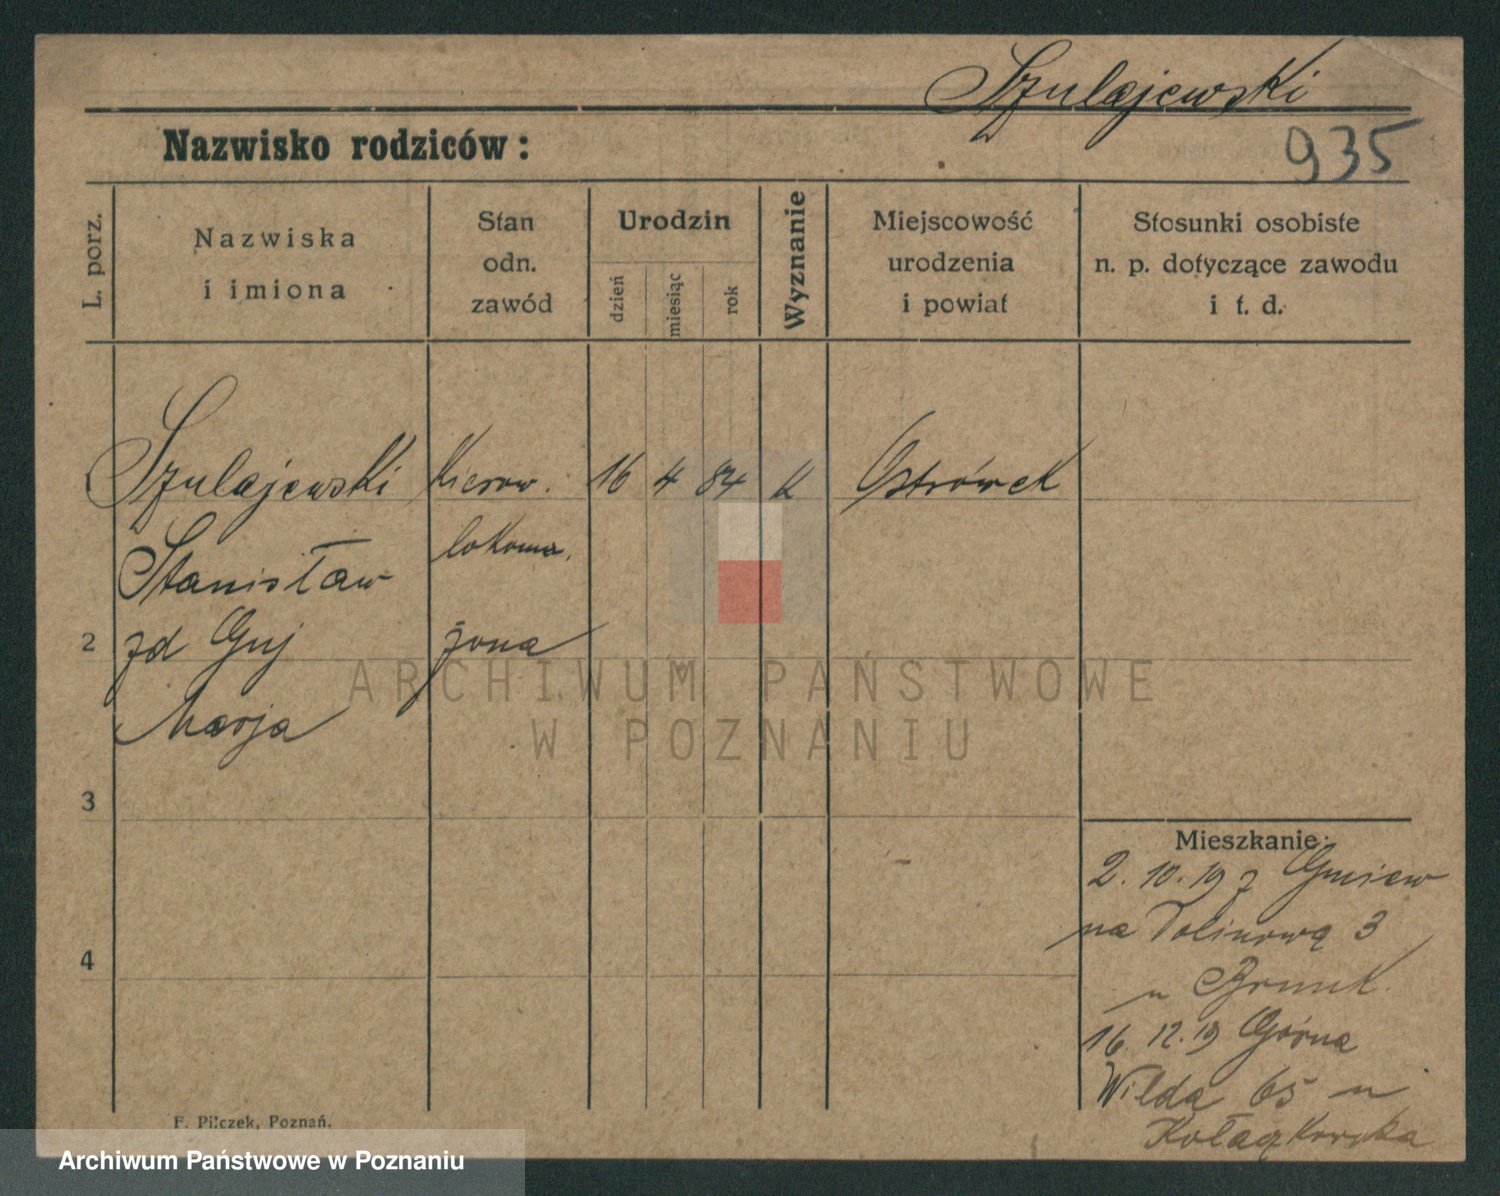 Szulajewski
Nazwisko rodziców:
935
L. porz.
Nazwiska
i imiona
Stan
odn.
zawód
Urodzin
dzień
miesiąc
rok
Wyznanie
Miejscowość
urodzenia
i powiat
Stosunki osobiste
n. p. dotyczące zawodu
i t. d.
Szulajewski Kierow. 16 4 84 k Ostrówek
Stanisław lokomo.
2 zd Guj żona
Marja
ARCHIWUM PAŃSTWOWE
W POZNANIU
3
Mieszkanie:
2.10.19 z Gniew
na Dolinową 3
u Brunk.
4
16.12.19 Górna
Wilda 65 u
Kołaczkowska
F. Pilczek, Poznań.
Archiwum Państwowe w Poznaniu